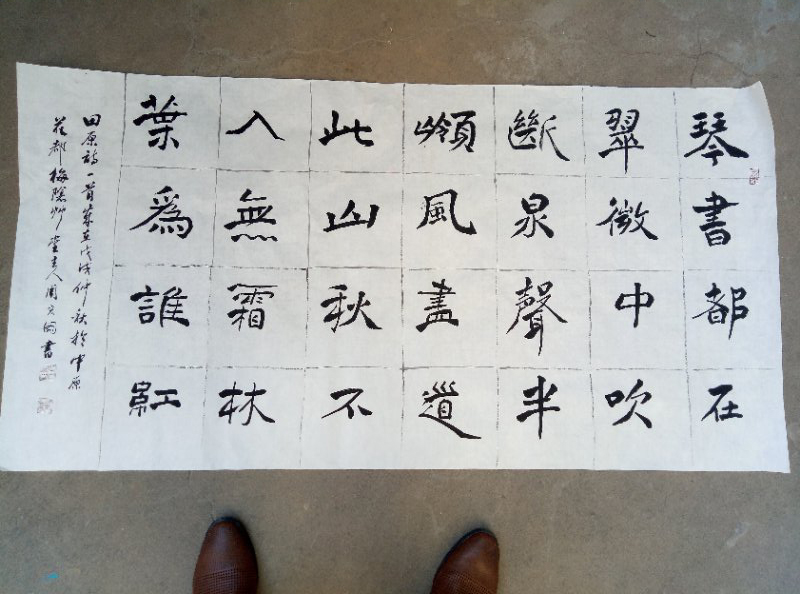 琴書都在
翠微中吹
斷泉聲半
嶺風盡道
此山秋不
入無霜林
葉為誰紅
田原詩一首歲在戊戌仲秋於中原
花都梅隱草堂主人周書